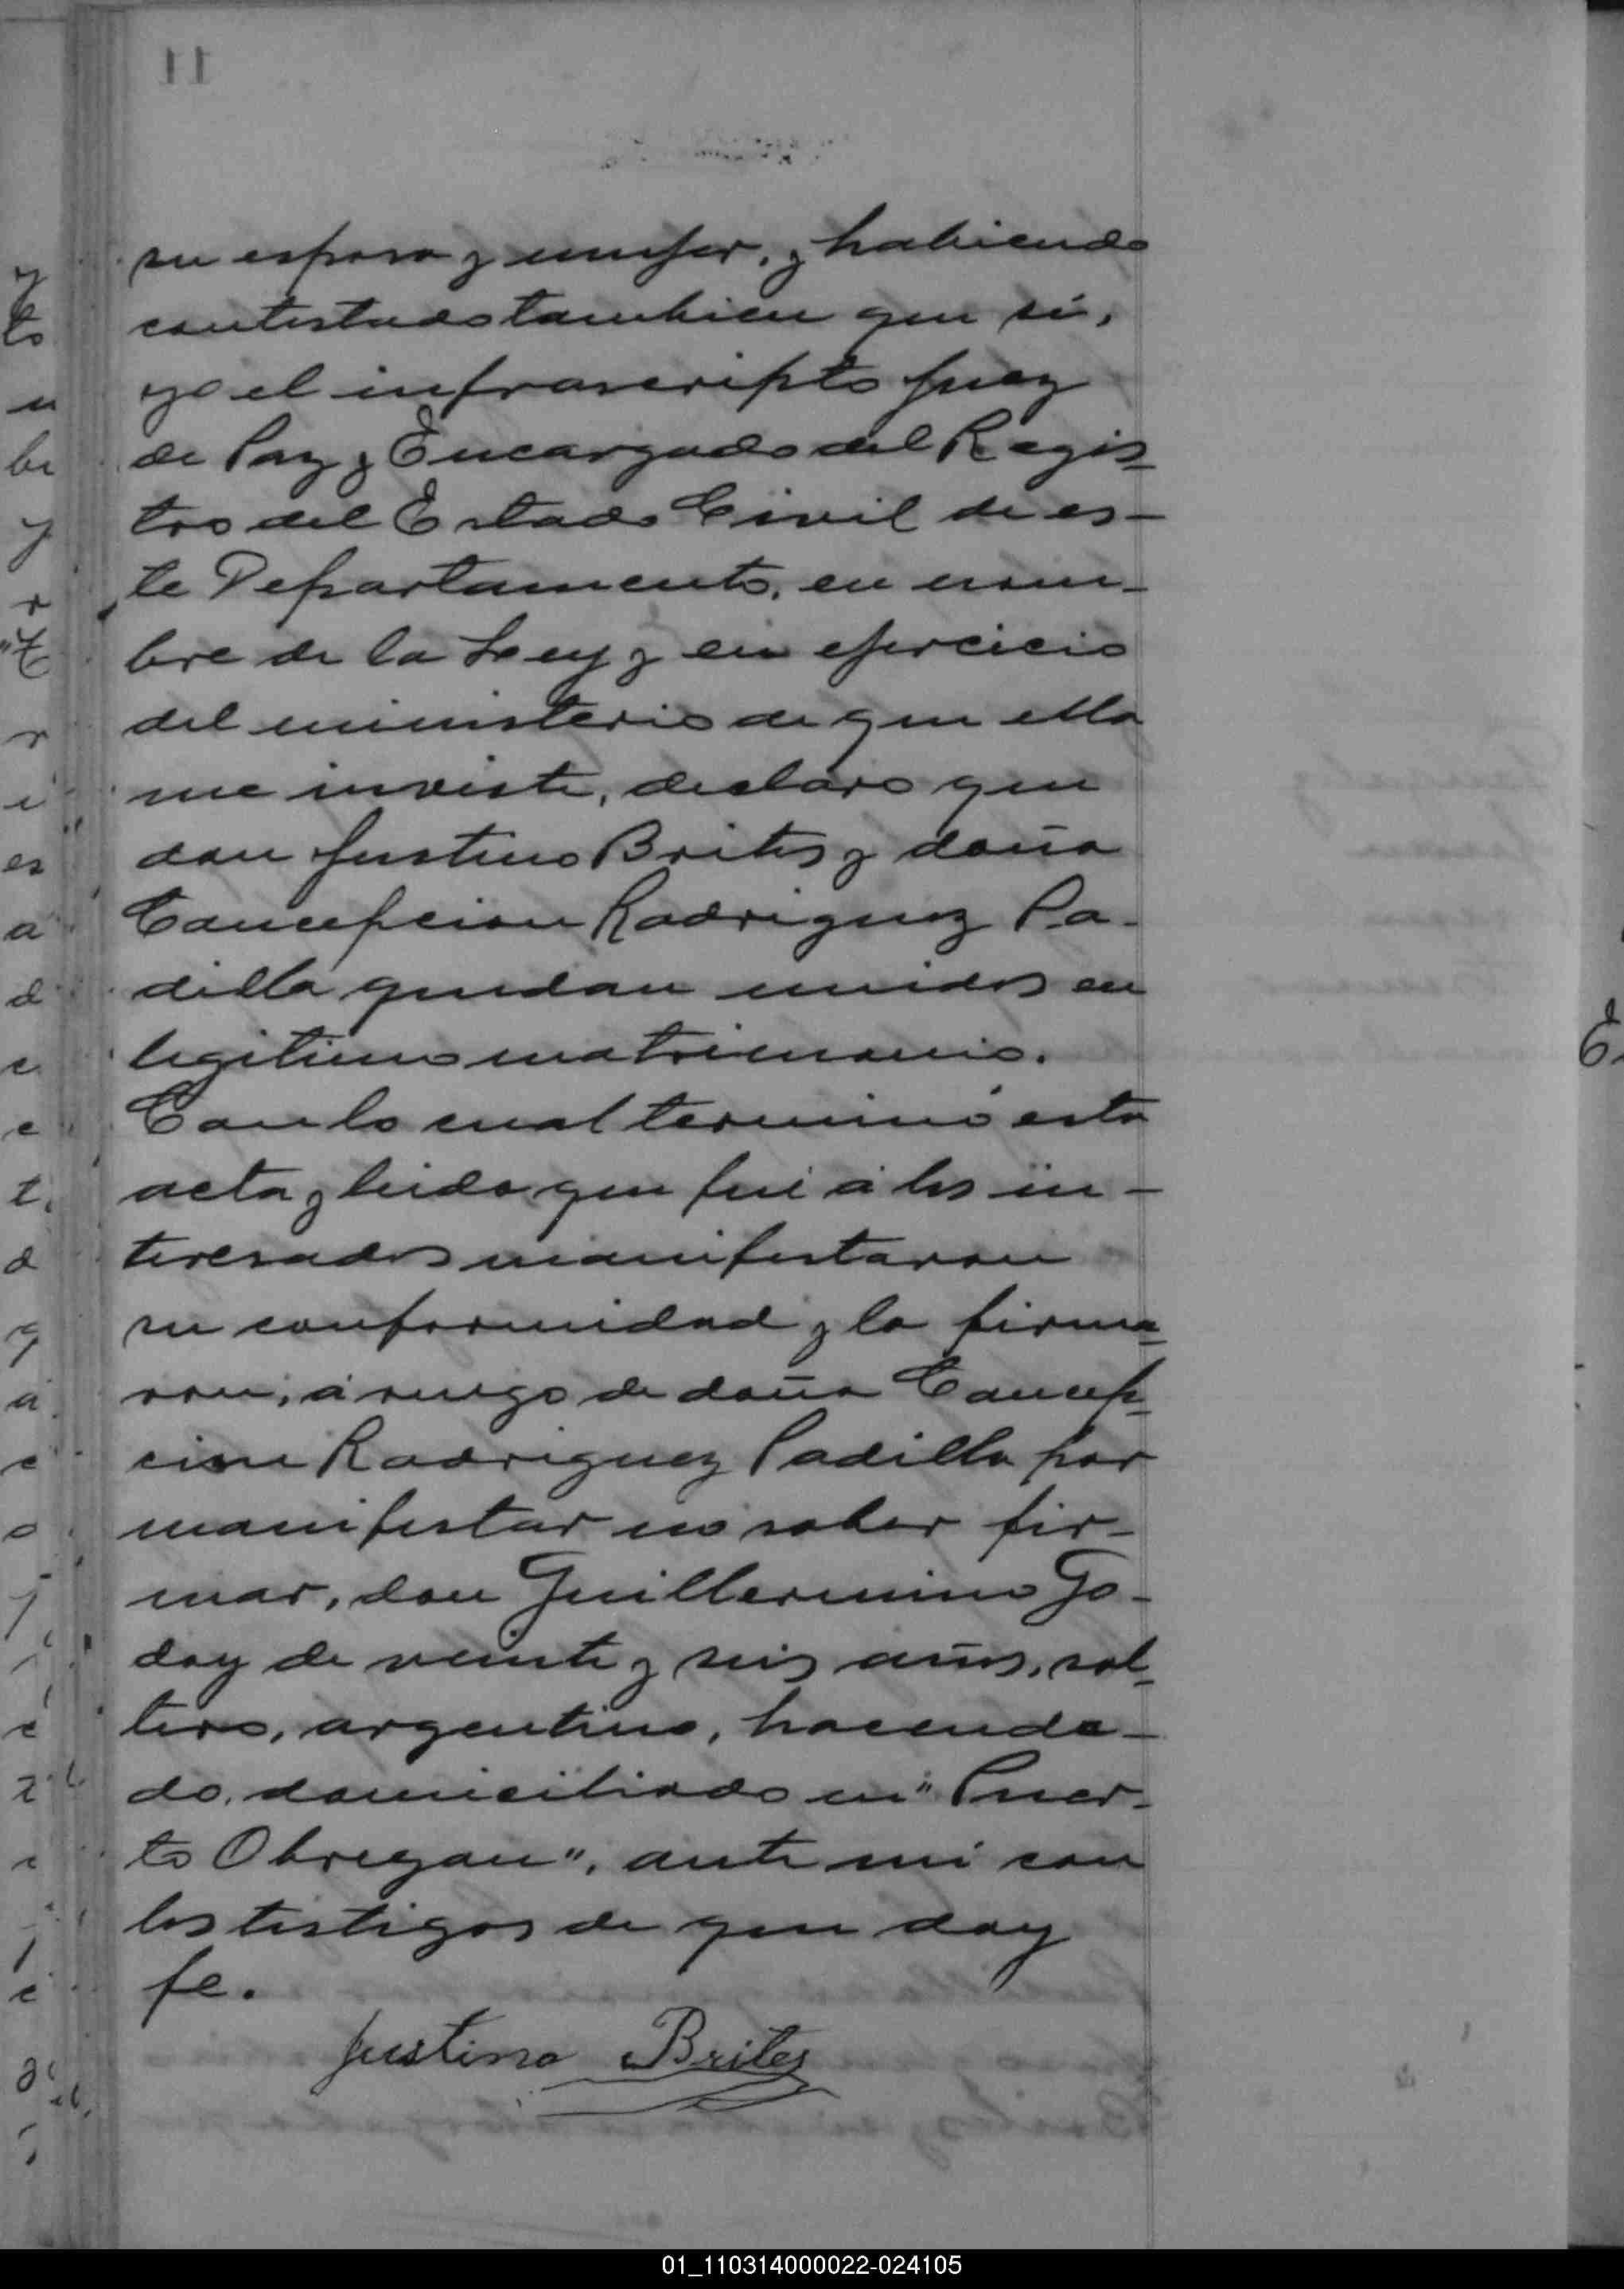 su esposa y mujer, y habiendo
contestado tambien que sí,
yo el infrascripto Juez
de Paz y Encargado del Regis-
tro del Estado Civil de es-
te Departamento, en nom-
bre de la Ley y en ejercicio
del ministerio de que ella
me inviste, declaro que
don Justino Brites y doña
Concepcion Rodriguez Pa-
dilla quedan unidos en
legitimo matrimonio.
Con lo cual terminó esta
acta y leida que fué á los in-
teresados manifestaron
su conformidad y la firma-
ron, á ruego de doña Concep-
cion Rodriguez Padilla por
manifestar no saber fir-
mar, don Guillermino Go-
doy de veinte y seis años, sol-
tero, argentino, hacenda-
do, domiciliado en "Puer-
to Obregon", ante mí con
los testigos de que doy
fe.
Justino Brites
01_110314000022-024105